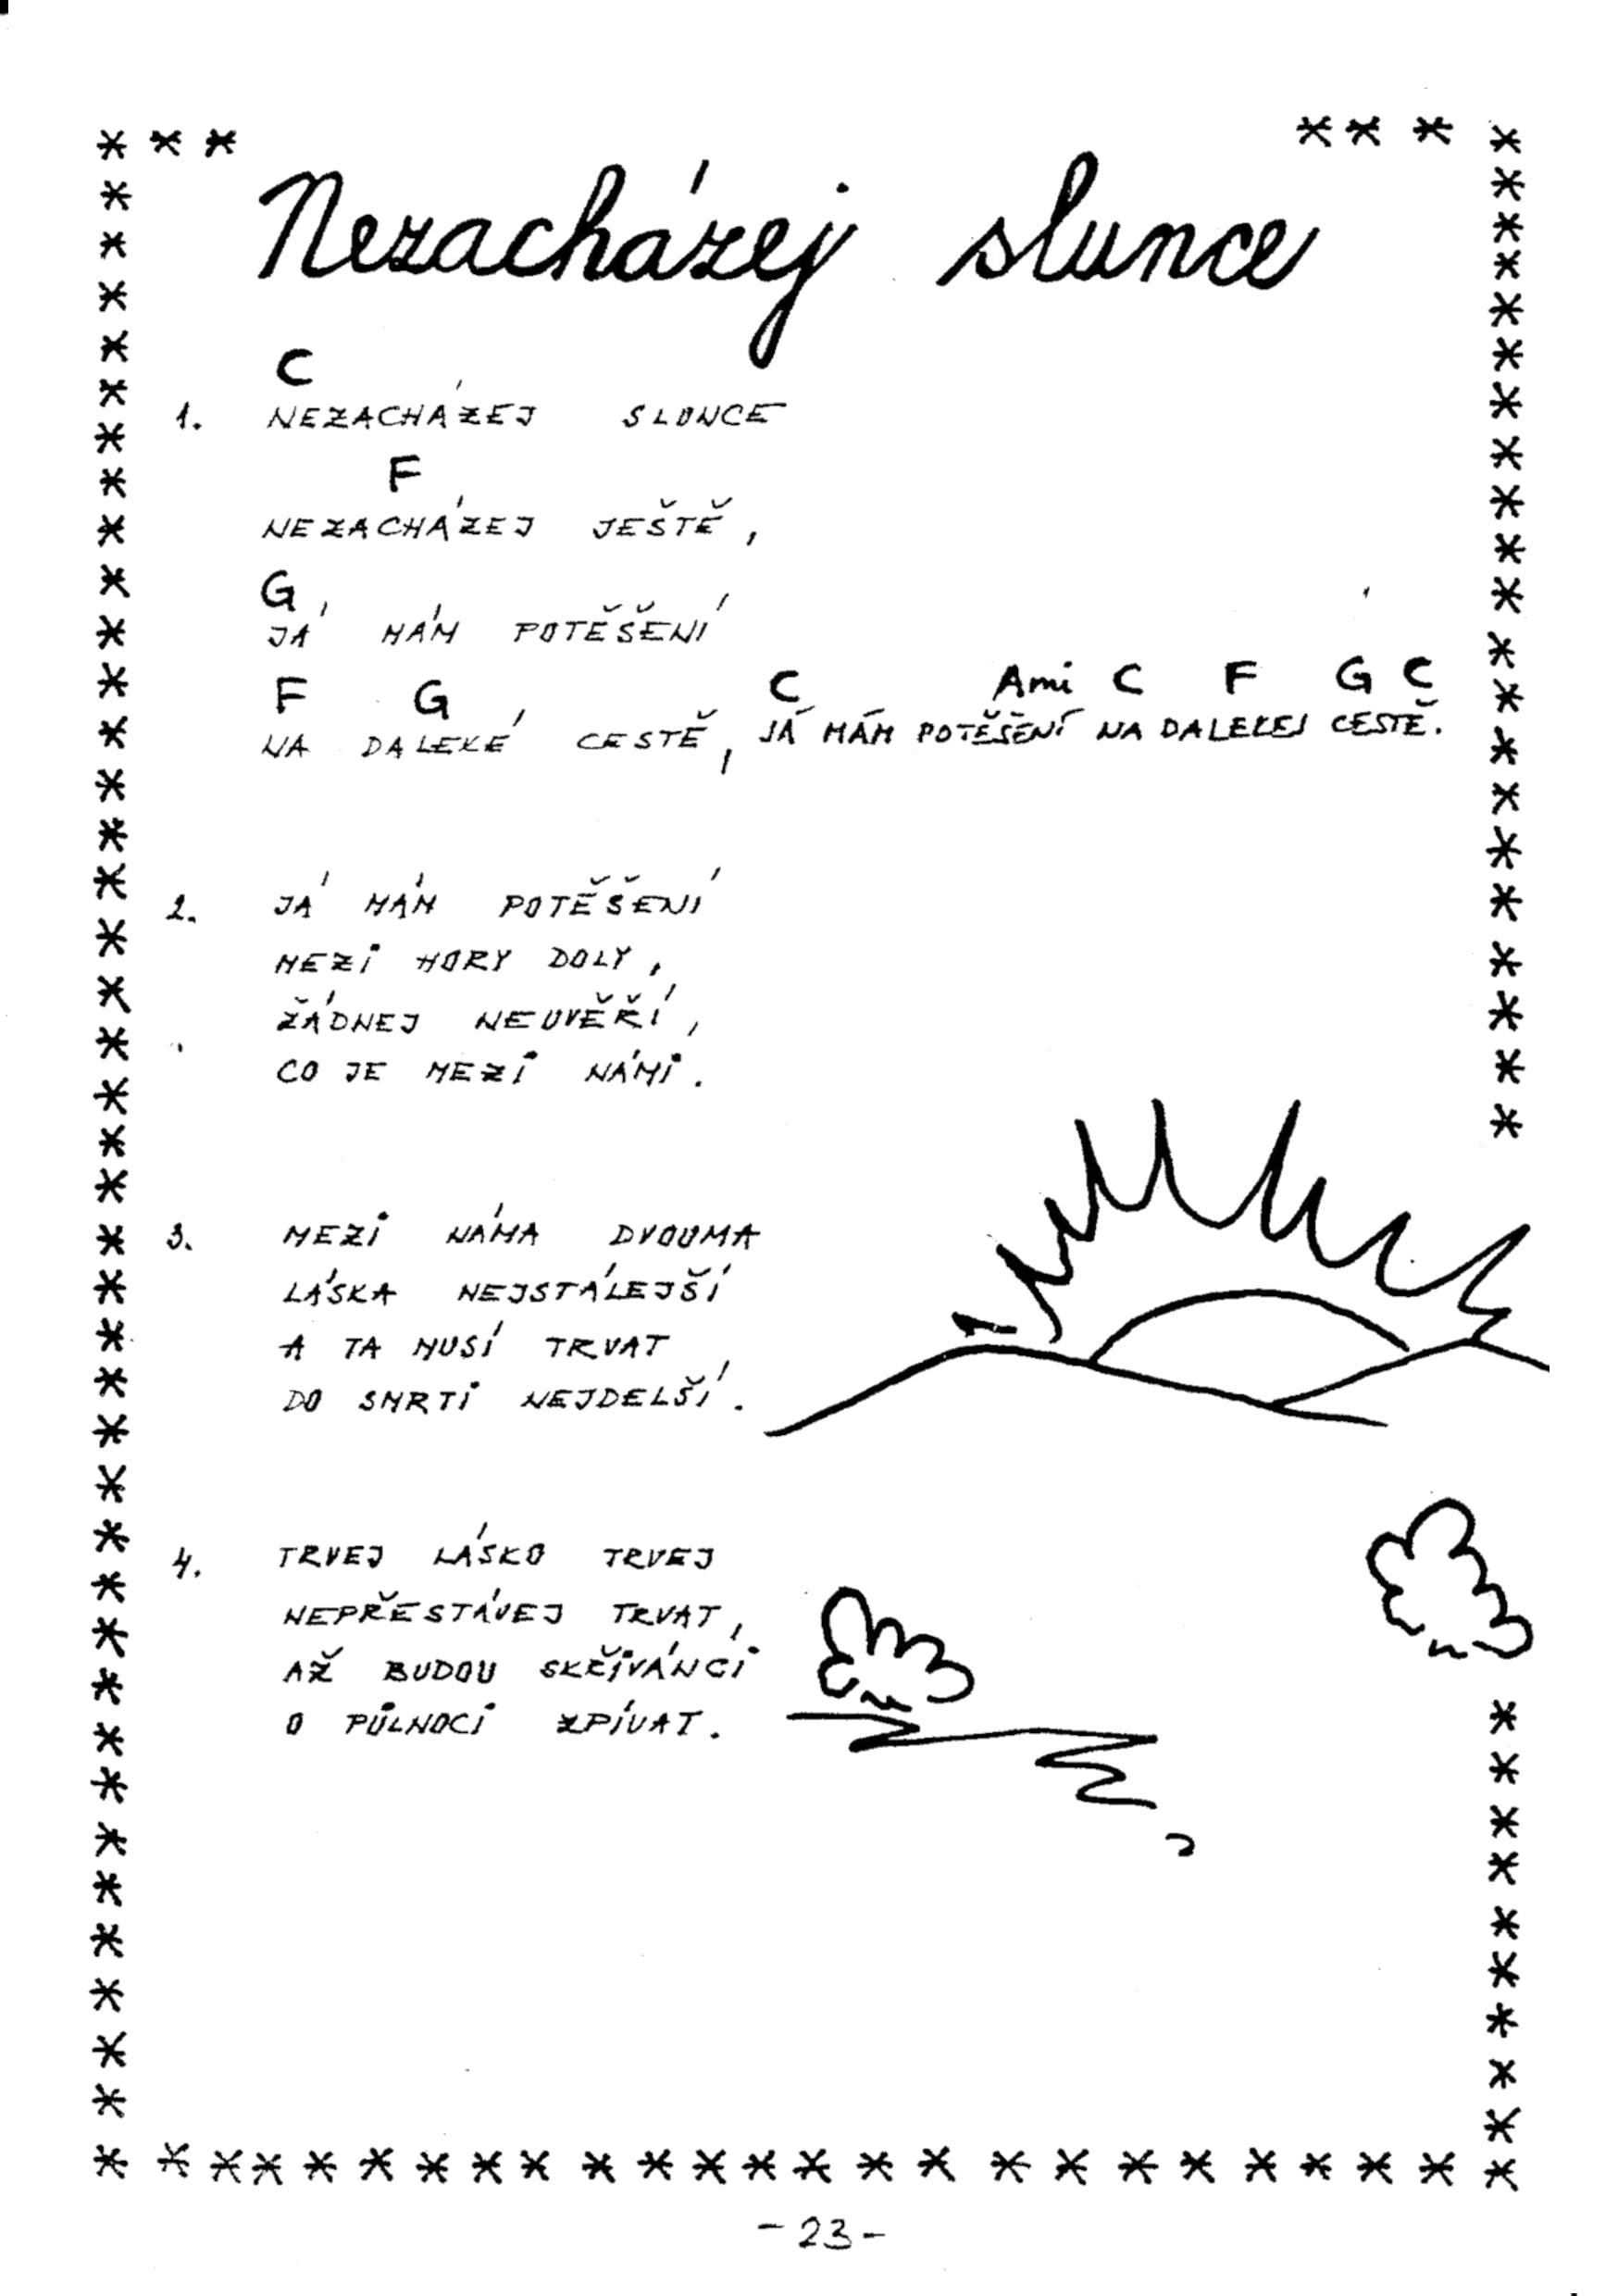 Nezacházej slunce
C
1. NEZACHÁZEJ SLUNCE
F
NEZACHÁZEJ JEŠTĚ,
G
JÁ MÁM POTĚŠENÍ
F G C Ami C F G C
NA DALEKÉ CESTĚ, JÁ MÁM POTĚŠENÍ NA DALEKEJ CESTĚ.
2. JÁ MÁM POTĚŠENÍ
MEZI HORY DOLY,
ŽÁDNEJ NEUVĚŘÍ,
CO JE MEZI NÁMI.
3. MEZI NÁMA DVOUMA
LÁSKA NEJSTÁLEJŠÍ
A TA MUSÍ TRVAT
DO SMRTI NEJDELŠÍ.
4. TRVEJ LÁSKO TRVEJ
NEPŘESTÁVEJ TRVAT,
AŽ BUDOU SKŘIVÁNCI
O PŮLNOCI ZPÍVAT.
-23-